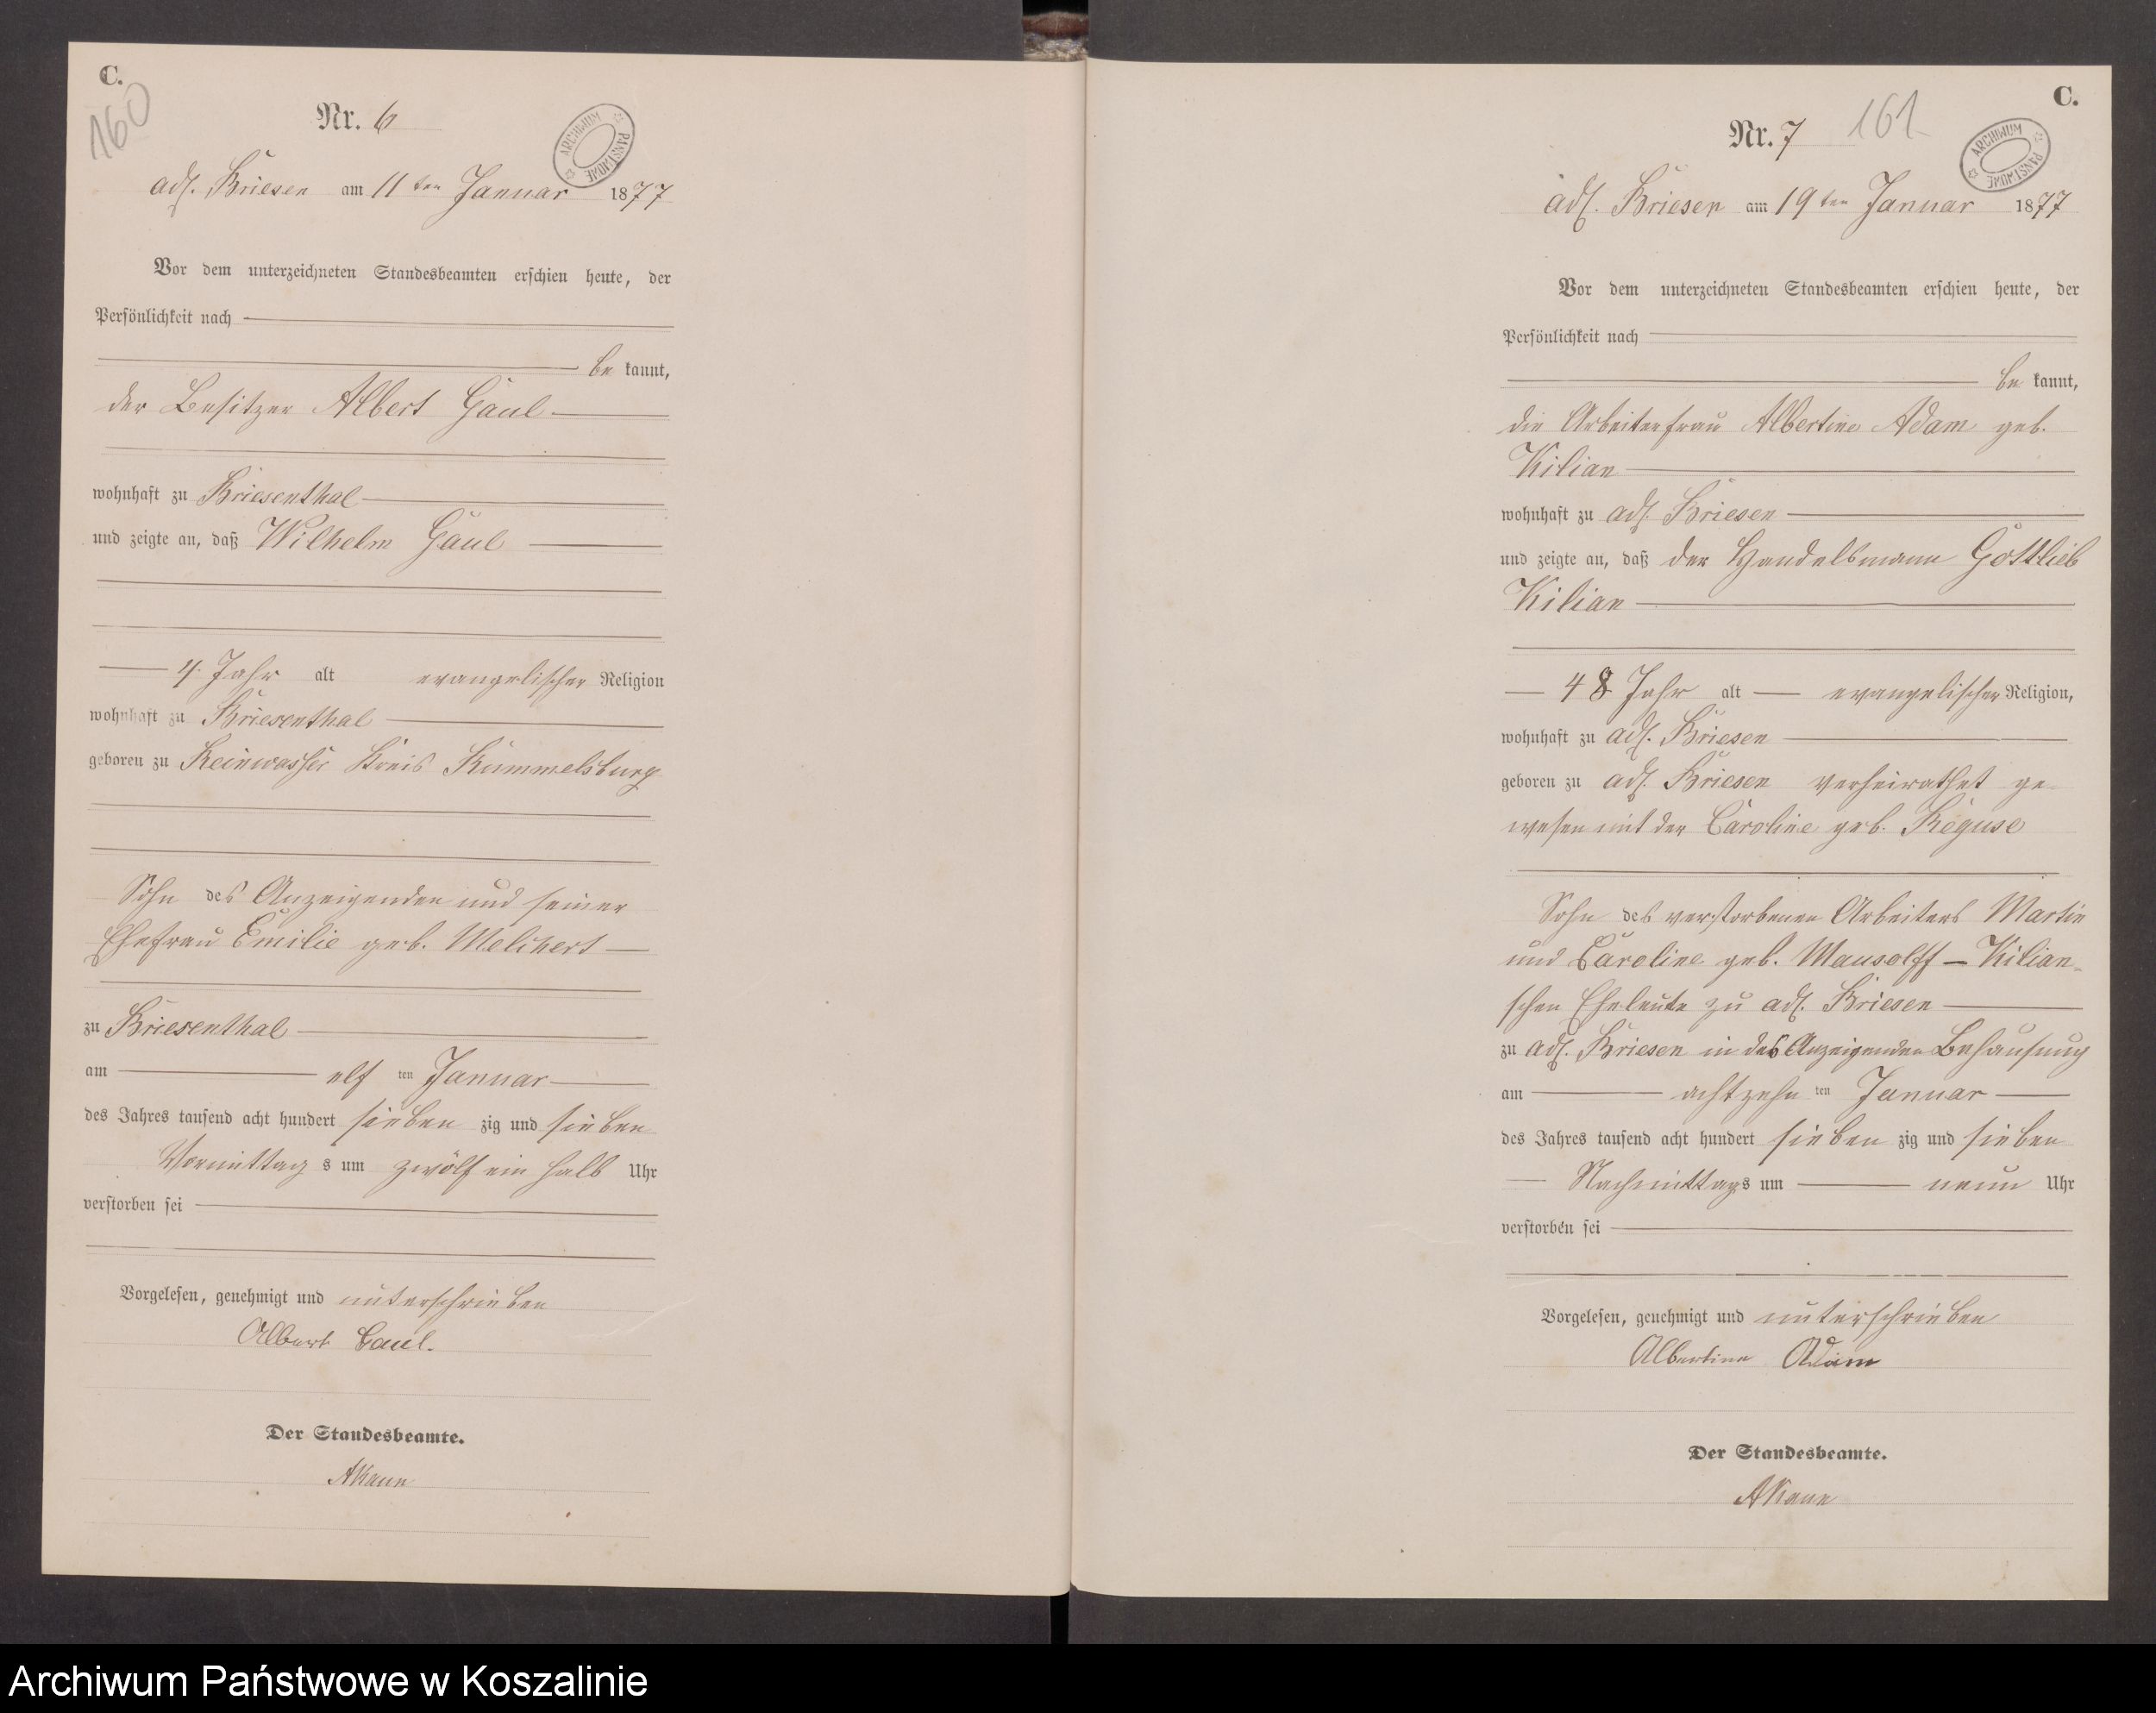 C.
160
Nr. 6
ARCHIWUM PAŃSTWOWE
adl. Briesen am 11ten Januar 1877
Vor dem unterzeichneten Standesbeamten erschien heute, der
Persönlichkeit nach
be kannt,
der Besitzer Albert Gaul
wohnhaft zu Briesenthal
und zeigte an, daß Wilhelm Gaul
4 Jahr alt evangelischer Religion
wohnhaft zu Briesenthal
geboren zu Reinwasser Kreis Rummelsburg
Sohn des Anzeigenden und seiner
Ehefrau Emilie geb. Melchert
zu Briesenthal
am elf ten Januar
des Jahres tausend acht hundert sieben zig und sieben
Vormittag s um zwölf ein halb Uhr
verstorben sei
Vorgelesen, genehmigt und unterschrieben
Albert Gaul.
Der Standesbeamte.
C.
Nr. 7
161
ARCHIWUM PAŃSTWOWE
adl. Briesen am 19ten Januar 1877
Vor dem unterzeichneten Standesbeamten erschien heute, der
Persönlichkeit nach
be kannt,
die Arbeiterfrau Albertine Adam geb.
Kilian
wohnhaft zu adl. Briesen
und zeigte an, daß der Handelsmann Gottlieb
Kilian
48 Jahr alt evangelischer Religion,
wohnhaft zu adl. Briesen
geboren zu adl. Briesen verheirathet ge-
wesen mit der Caroline geb. Reguse
Sohn des verstorbenen Arbeiters Martin
und Caroline geb. Mausolff – Kilian-
schen Eheleute zu adl. Briesen
zu adl. Briesen in des Anzeigenden Behausung
am achtzehn ten Januar
des Jahres tausend acht hundert sieben zig und sieben
Nachmittags um neun Uhr
verstorben sei
Vorgelesen, genehmigt und unterschrieben
Albertine Adam
Der Standesbeamte.
Archiwum Państwowe w Koszalinie